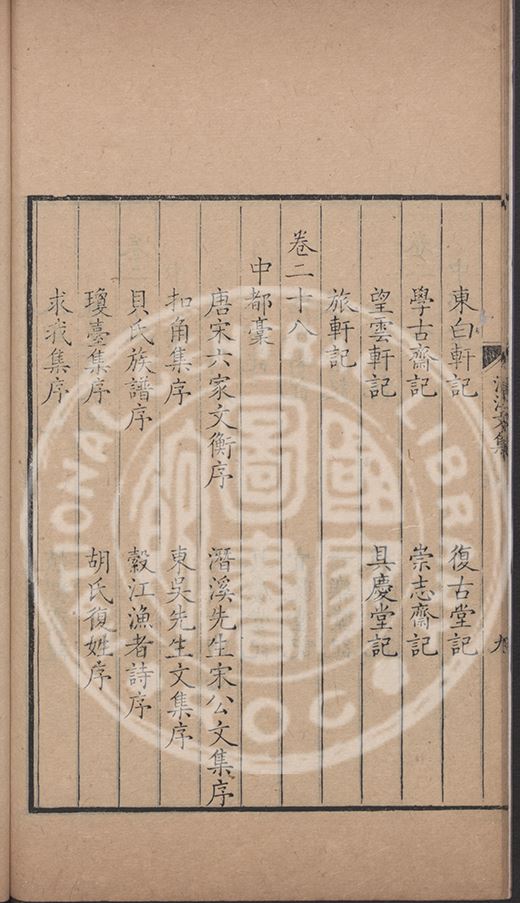 東白軒記 復古堂記
學古齋記 崇志齋記
望雲軒記 具慶堂記
旅軒記
卷二十八
中都稾
唐宋六家文衡序 潛溪先生宋公文集序
扣角集序 東吳先生文集序
貝氏族譜序 穀江漁者詩序
瓊臺集序 胡氏復姓序
求我集序
九